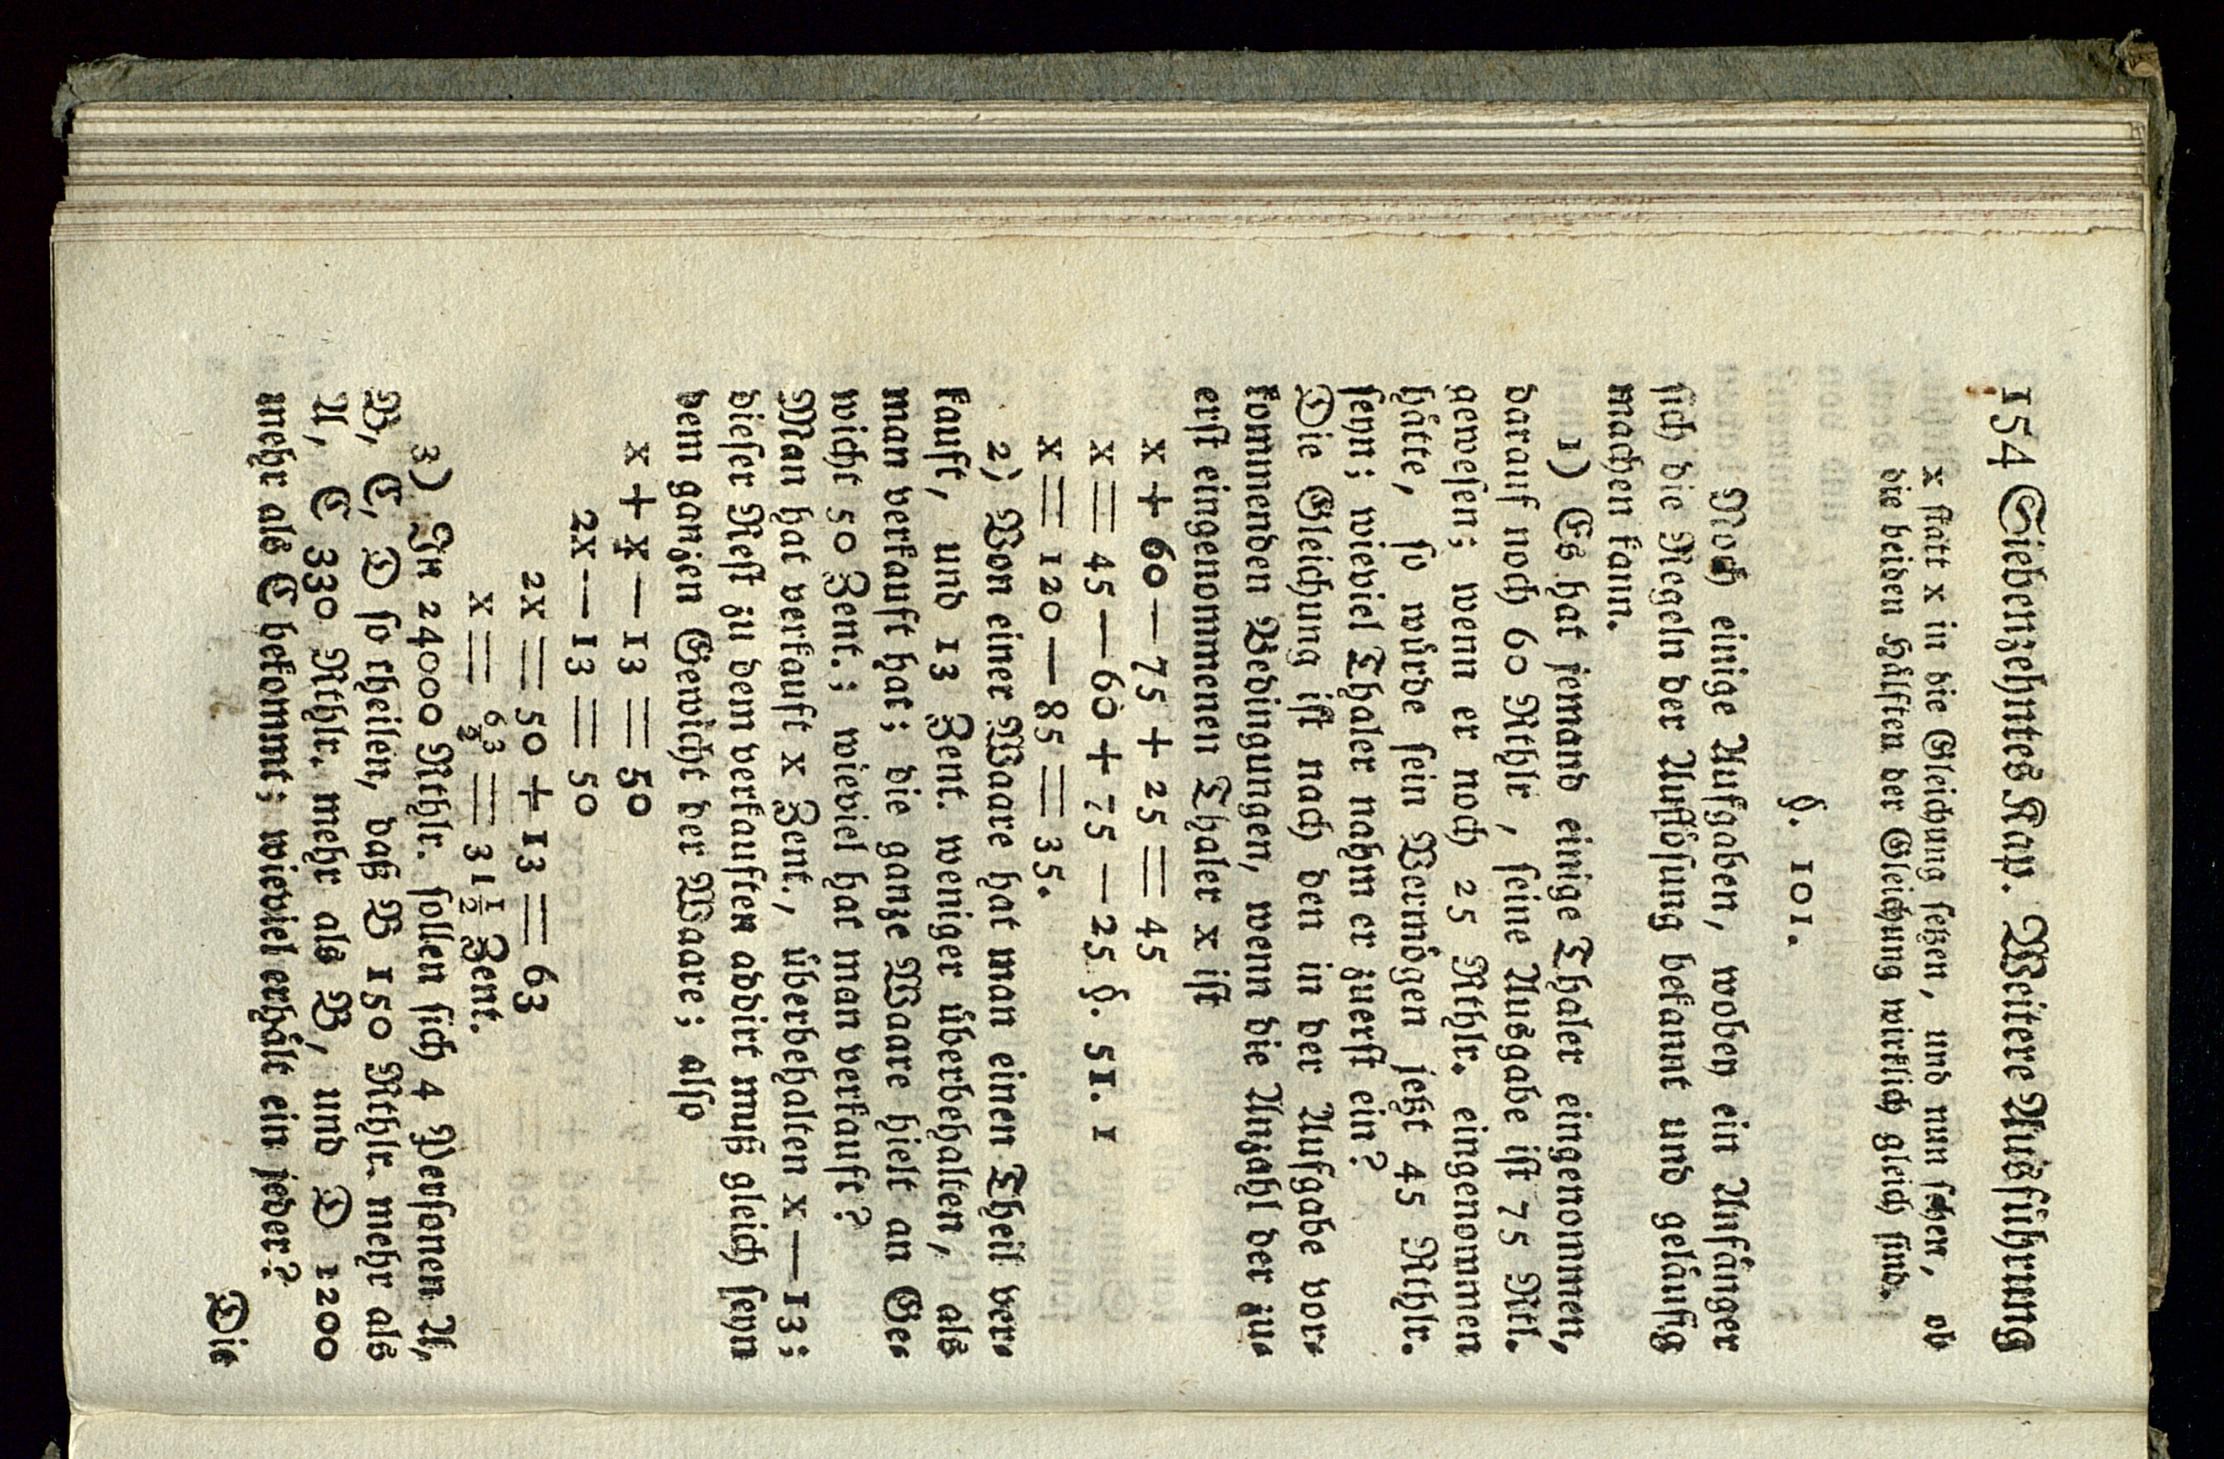 154 Siebenzehntes Kap. Weitere Ausführung
x statt x in die Gleichung setzen, und nun sehen, ob
die beiden Hälften der Gleichung wirklich gleich sind.
§. 101.
Noch einige Aufgaben, wobey ein Anfänger
sich die Regeln der Auflösung bekannt und geläufig
machen kann.
1) Es hat jemand einige Thaler eingenommen,
darauf noch 60 Rthlr, seine Ausgabe ist 75 Rtl.
gewesen; wenn er noch 25 Rthlr. eingenommen
hätte, so würde sein Vermögen jetzt 45 Rthlr.
seyn; wieviel Thaler nahm er zuerst ein?
Die Gleichung ist nach den in der Aufgabe vor-
kommenden Bedingungen, wenn die Anzahl der zu-
erst eingenommenen Thaler x ist
x + 60 — 75 + 25 = 45
x = 45 — 60 + 75 — 25 §. 51. 1
x = 120 — 85 = 35.
2) Von einer Waare hat man einen Theil ver-
kauft, und 13 Zent. weniger überbehalten, als
man verkauft hat; die ganze Waare hielt an Ge-
wicht 50 Zent.; wieviel hat man verkauft?
Man hat verkauft x Zent., überbehalten x — 13;
dieser Rest zu dem verkauften addirt muß gleich seyn
dem ganzen Gewicht der Waare; also
x + x — 13 = 50
2x — 13 = 50
2x = 50 + 13 = 63
x = 63/2 = 31 1/2 Zent.
3) In 24000 Rthlr. sollen sich 4 Personen A,
B, C, D so theilen, daß B 150 Rthlr. mehr als
A, C 330 Rthlr. mehr als B, und D 1200
mehr als C bekommt; wieviel erhält ein jeder?
Die